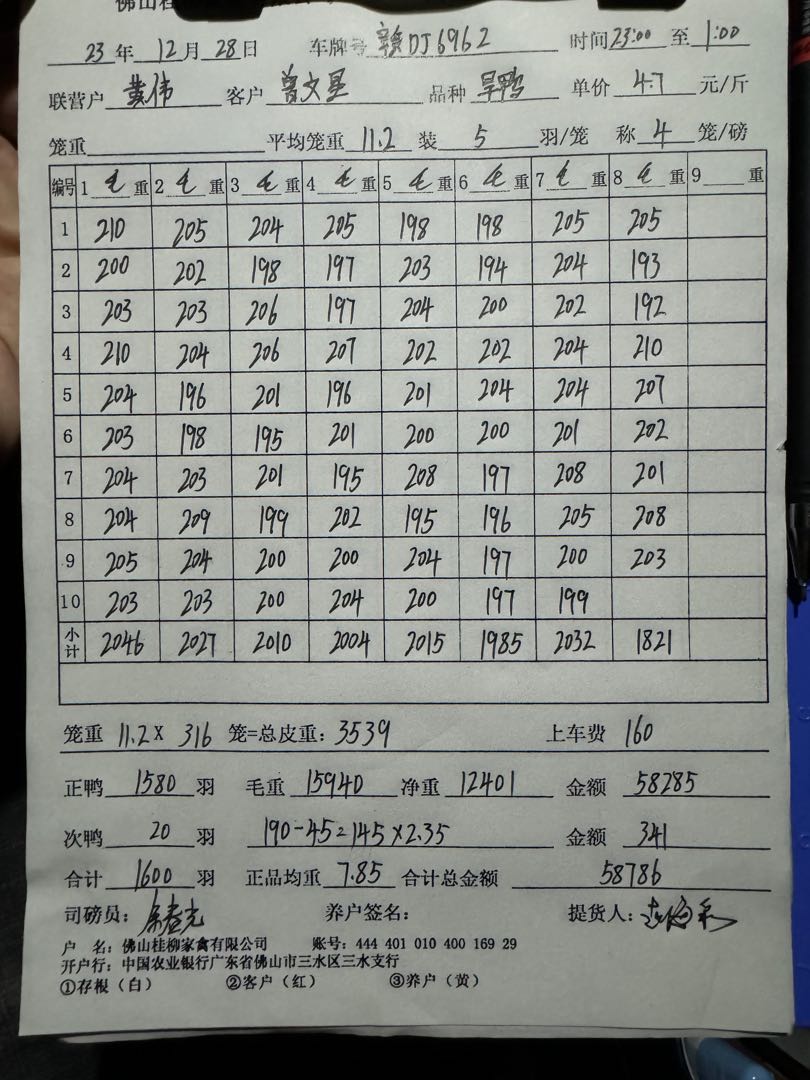 佛山桂
23年 12月 28日 车牌号 赣DJ6962 时间23:00至1:00
联营户 黄伟 客户 曾文星 品种 旱鸭 单价 4.7 元/斤
笼重 平均笼重 11.2 装 5 羽/笼 称 4 笼/磅
编号 1 毛 重 2 毛 重 3 毛 重 4 毛 重 5 毛 重 6 毛 重 7 毛 重 8 毛 重 9 重
1 210 205 204 205 198 198 205 205
2 200 202 198 197 203 194 204 193
3 203 203 206 197 204 200 202 192
4 210 204 206 207 202 202 204 210
5 204 196 201 196 201 204 204 207
6 203 198 195 201 200 200 201 202
7 204 203 201 195 208 197 208 201
8 204 209 199 202 195 196 205 208
9 205 204 200 200 204 197 200 203
10 203 203 200 204 200 197 199
小计 2046 2027 2010 2004 2015 1985 2032 1821
笼重 11.2 X 316 笼=总皮重: 3539 上车费 160
正鸭 1580 羽 毛重 15940 净重 12401 金额 58285
次鸭 20 羽 190-45=145×2.35 金额 341
合计 1600 羽 正品均重 7.85 合计总金额 58786
司磅员: 养户签名: 提货人:
户 名: 佛山桂柳家禽有限公司 账号: 444 401 010 400 169 29
开户行: 中国农业银行广东省佛山市三水区三水支行
①存根(白) ②客户(红) ③养户(黄)